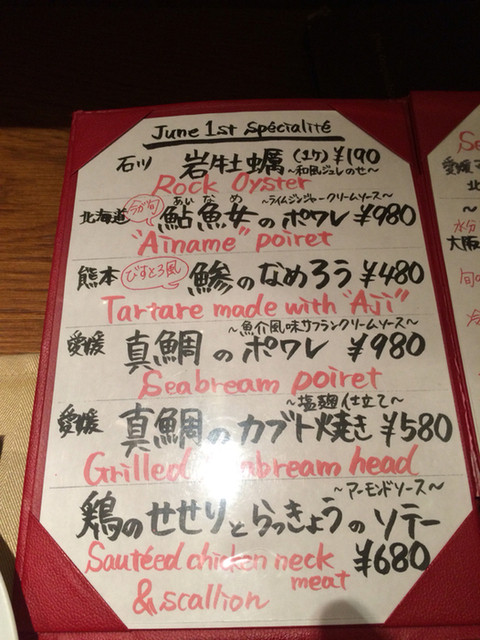 June 1st Spécialité
石川 岩牡蠣 (1ケ) ¥190
~和風ジュレのせ~
Rock Oyster
~ライムジンジャークリームソース~
北海道 今が旬 鮎魚女のポワレ ¥980
あいなめ
"Ainame" poiret
熊本 びすとろ風 鰺のなめろう ¥480
Tartare made with "Aji"
~魚介風味サフランクリームソース~
愛媛 真鯛のポワレ ¥980
Seabream poiret
~塩麹仕立て~
愛媛 真鯛のカブト焼き ¥580
Grilled bream head
~アーモンドソース~
鶏のせせりとらっきょうのソテー
¥680
Sautéed chicken neck
meat
& scallion
Se
愛媛
北
~
水分
大阪
旬